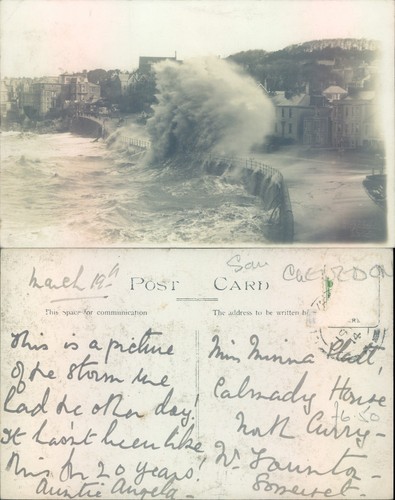 March 19th
Som CLEVEDON
POST CARD
This space for communication
The address to be written
This is a picture
of the storm we
had the other day!
It hasn't been like
this for 20 years!
Auntie Angela -
Miss Minna Platt,
Calmady House
7650
North Curry -
Nr. Taunton -
Somerset -